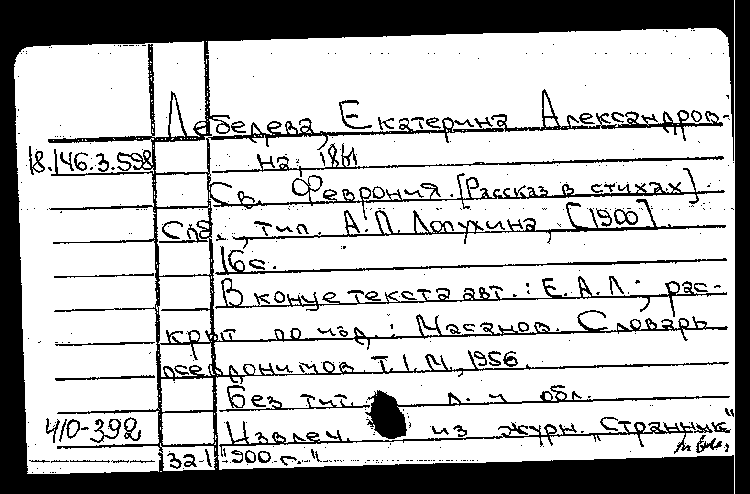 Лебедева, Екатерина Александров-
18.146.3.598 на, 1861
Св. Феврония. [Рассказ в стихах].
Спб., тип. А.П. Лопухина, [1900].
16с.
В конце текста авт.: Е.А.Л.; рас-
крыт по изд.: Масанов. Словарь
псевдонимов. Т.1. М., 1956.
Без тит. л. и обл.
410-392 Извлеч. из журн. "Странник"
32-1 "900 г."